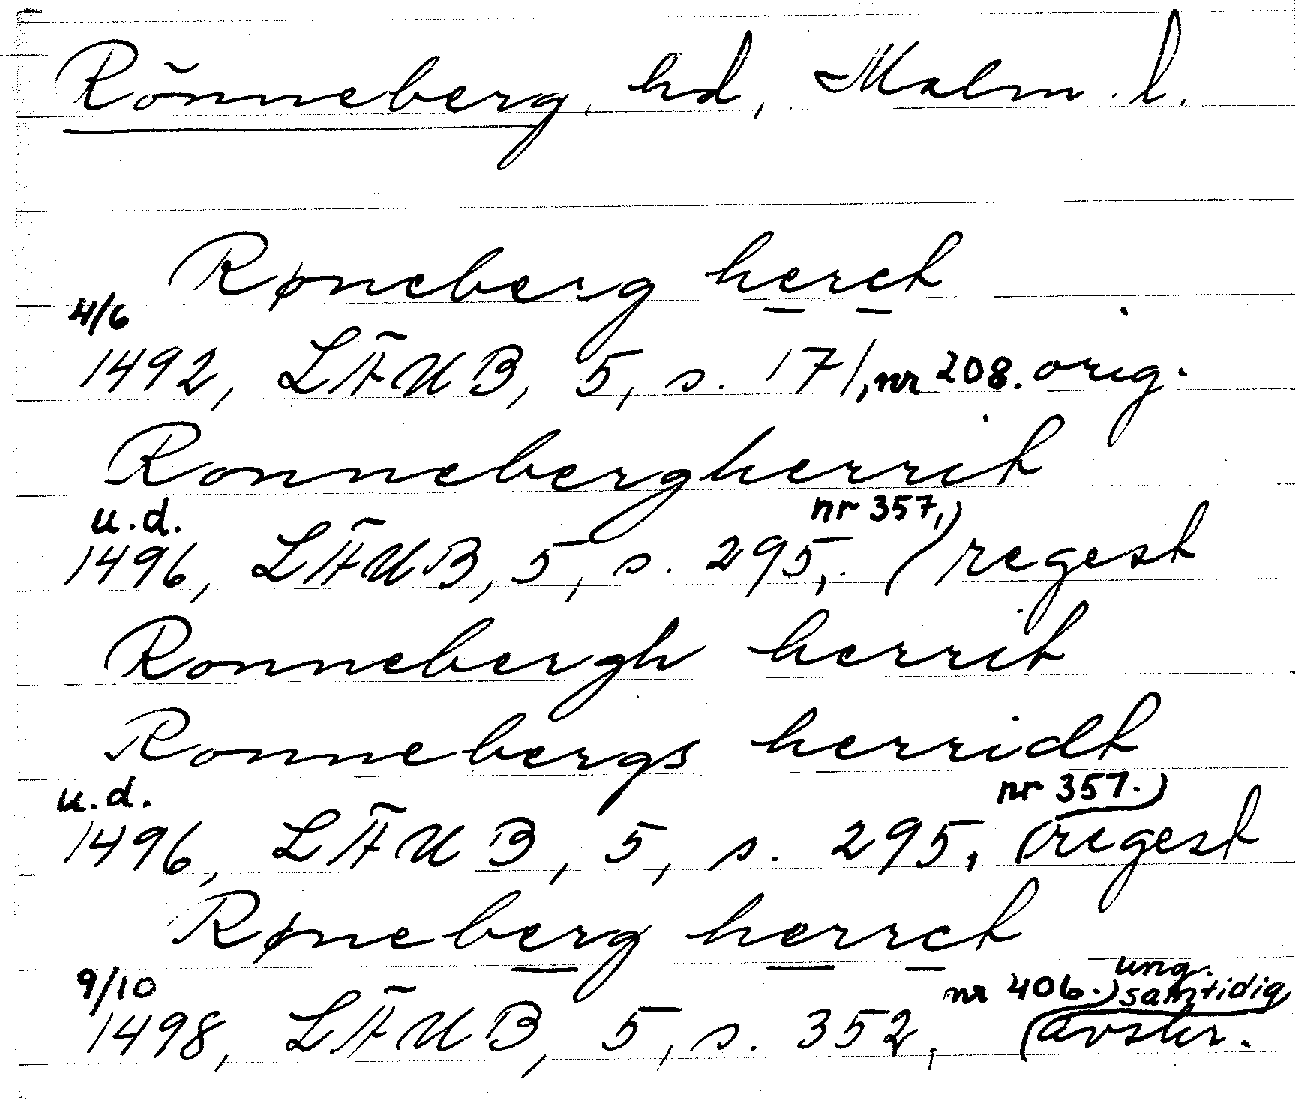 Rönneberg, hd, Malm. l.
Røneberg heret
4/6
1492, LÄUB, 5, s. 171, nr 208. orig.
Ronnebergherrit
u.d.
1496, LÄUB, 5, s. 295, nr 357, regest
Ronnebergh herrit
Ronnebergs herridt
u.d.
1496, LÄUB, 5, s. 295, nr 357. regest
Røneberg herret
9/10
1498, LÄUB, 5, s. 352, nr 406. ung. samtidig
avskr.